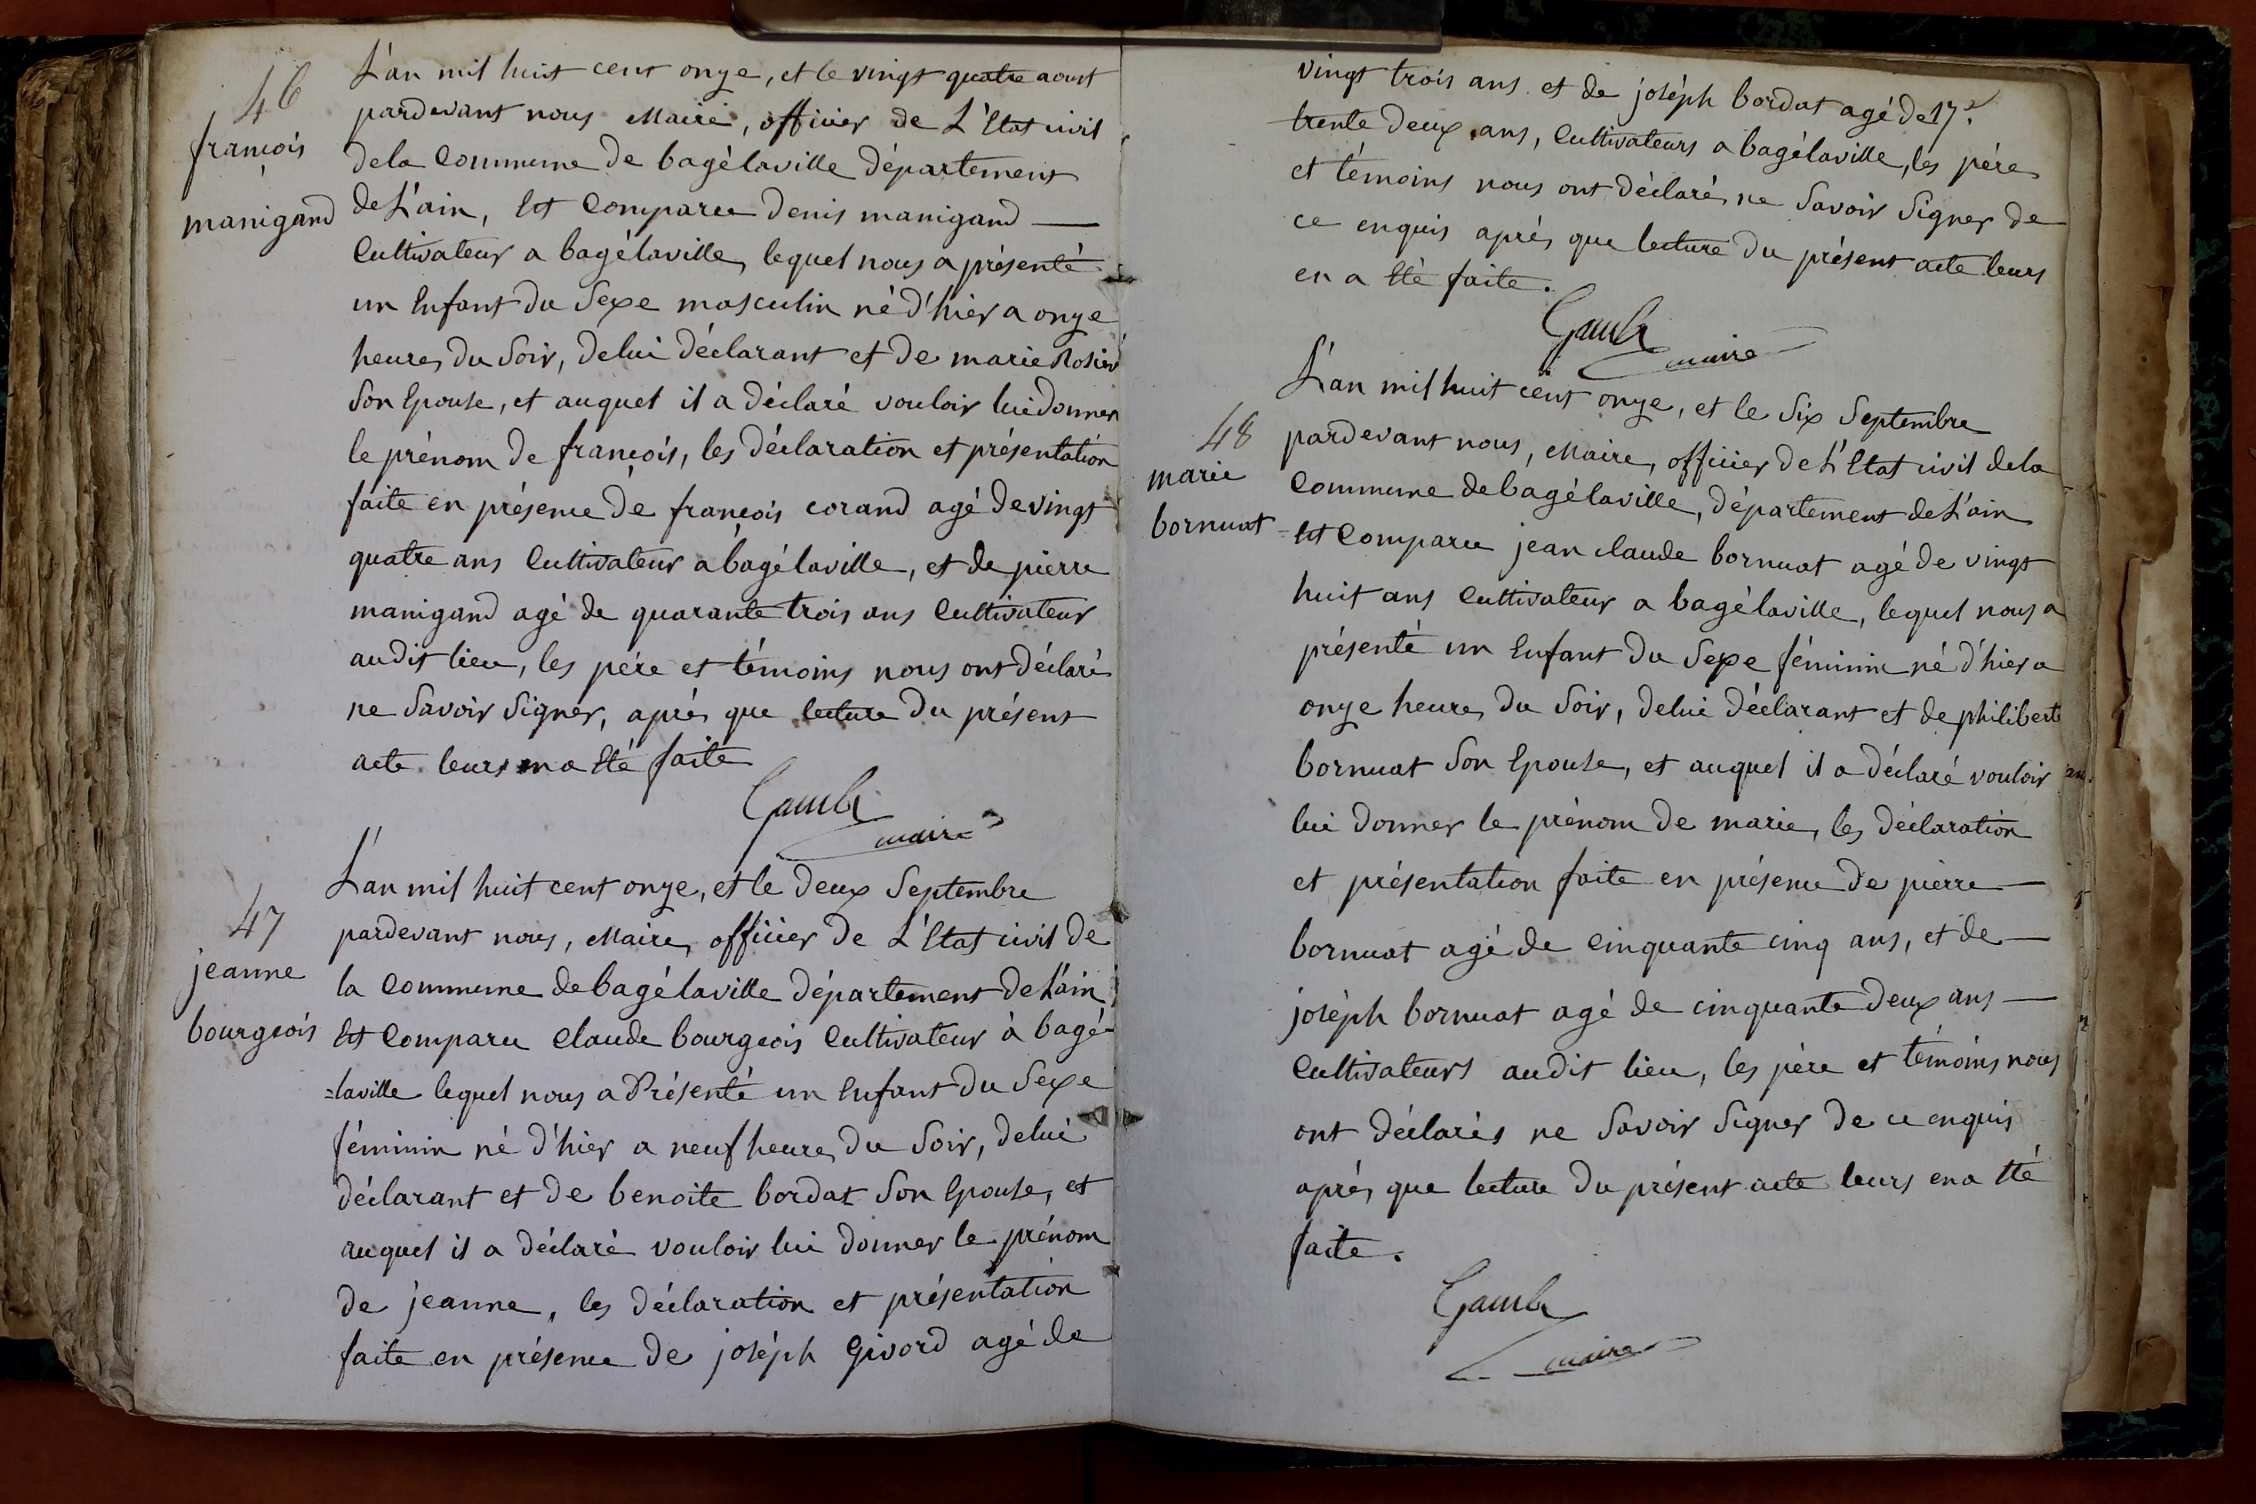 46
françois
manigand
L'an mil huit cent onze, et le vingt quatre aoust
pardevant nous Maire, officier de L'Etat civil
dela Commune de bagélaville département
de L'ain, Est Comparu denis manigand
Cultivateur a bagélaville, lequel nous a présenté
un Enfant du Sexe masculin né d'hier a onze
heures du Soir, delui déclarant et de marie Rosier
Son Epouse, et auquel il a déclaré vouloir lui donner
le prénom de françois, les déclaration et présentation
faite en présence de françois corand agé de vingt
quatre ans Cultivateur a bagélaville, et de pierre
manigand agé de quarante trois ans Cultivateur
audit lieu, les pére et témoins nous ont déclaré
ne Savoir Signer, après que lecture du présent
acte leurs en a Eté faite
maire
47
jeanne
bourgeois
L'an mil huit cent onze, et le deux Septembre
pardevant nous, Maire, officier de L'Etat civil de
la Commune de bagélaville département de L'ain
Est Comparu Claude bourgeois Cultivateur à bagé-
=laville lequel nous a Présenté un Enfant du Sexe
féminin né d'hier a neuf heures du Soir, delui
déclarant et de benoite bordat Son Epouse, et
auquel il a déclaré vouloir lui donner le prénom
de jeanne, les déclaration et présentation
faite en présence de joséph Givord agé de
vingt trois ans et de joséph bordat agé de
trente deux ans, Cultivateurs a bagélaville, les pére
et témoins nous ont déclaré ne Savoir Signer de
ce enquis après que lecture du présent acte leurs
en a Eté faite.
maire
48
marie
bornuat
L'an mil huit cent onze, et le Six Septembre
pardevant nous, Maire, officier de L'Etat civil dela
Commune de bagélaville, département de L'ain
Est Comparu jean claude bornuat agé de vingt
huit ans Cultivateur a bagélaville, lequel nous a
présenté un Enfant du Sexe féminin né d'hier a
onze heures du Soir, delui déclarant et de philiberte
bornuat Son Epouse, et auquel il a déclaré vouloir
lui donner le prénom de marie, les déclaration
et présentation faite en présence de pierre
bornuat agé de Cinquante cinq ans, et de
joséph bornuat agé de cinquante deux ans
Cultivateurs audit lieu, les pére et témoins nous
ont déclarés ne Savoir Signer de ce enquis
après que lecture du présent acte leurs en a Eté
faite.
maire